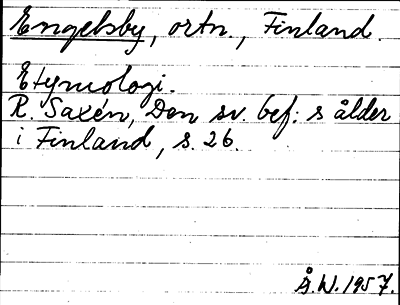 Engelsby, ortn., Finland.
Etymologi.
R. Saxén, Den sv. bef:s ålder
i Finland, s. 26.
Å.W. 1957.